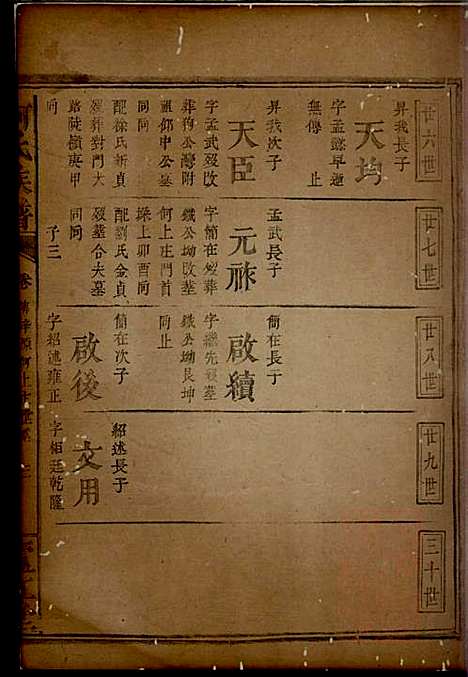 廿六世
廿七世
廿八世
廿九世
三十世
昇我長子
天均
字孟懿早逝
無傳 止
昇我次子
天臣
字孟武歿改
葬狗公灣附
畢仰申公墓
同同
配徐氏新貞
歿葬對門大
路陡嶺庚甲
同
孟武長子
元祚
字簡在歿葬
鐵公坳改葬
何上庄門首
垛上卯酉同
配劉氏金貞
歿葬合夫墓
同同
子三
簡在長子
啟續
字繼先歿葬
鐵公坳艮坤
同止
簡在次子
啟後
字紹述雍正
紹述長子
文用
字相廷乾隆
氏族譜
卷